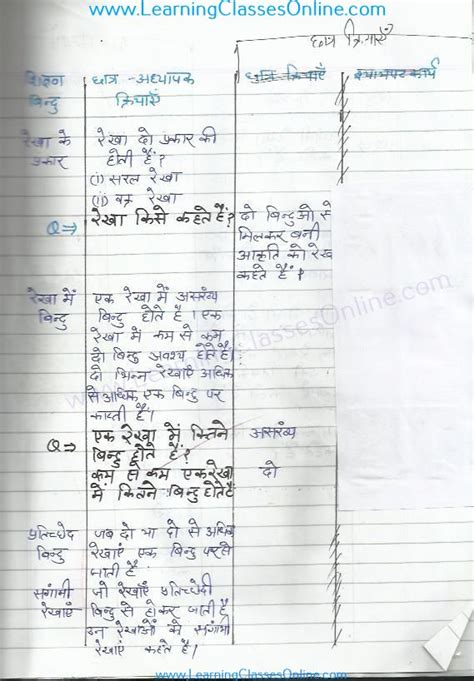 www.LearningClassesOnline.com
छात्र क्रियाएँ
शिक्षण छात्र-अध्यापक छात्र क्रियाएँ श्यामपट कार्य
बिन्दु क्रियाएँ
रेखा के रेखा दो प्रकार की
प्रकार होती हैं?
(i) सरल रेखा
(ii) वक्र रेखा
Q ⇒ रेखा किसे कहते हैं? दो बिन्दुओ से
मिलकर बनी
आकृति को रेखा
कहते हैं।
रेखा में एक रेखा में असंख्य
बिन्दु बिन्दु होते हैं। एक
रेखा में कम से कम
दो बिन्दु अवश्य होते हैं।
दो भिन्न रेखाएँ अधिक
से अधिक एक बिन्दु पर
काटती हैं।
Q ⇒ एक रेखा में कितने असंख्य
बिन्दु होते हैं?
कम से कम एक रेखा दो
में कितने बिन्दु होते हैं
प्रतिच्छेद जब दो या दो से अधिक
बिन्दु रेखाएं एक बिन्दु पर से
जाती हैं
संगामी जो रेखाएँ प्रतिच्छेदी
रेखाएं बिन्दु से होकर जाती हैं
उन रेखाओं को संगामी
रेखाएं कहते हैं।
www.LearningClassesOnline.com
www.LearningClassesOnline.com